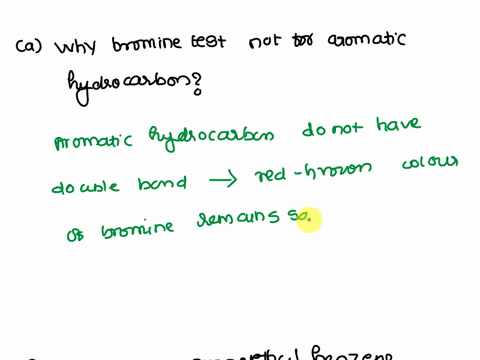 (a) Why bromine test not for aromatic
hydrocarbon?
Aromatic hydrocarbon do not have
double bond → red-brown colour
of bromine remains so.
benzene